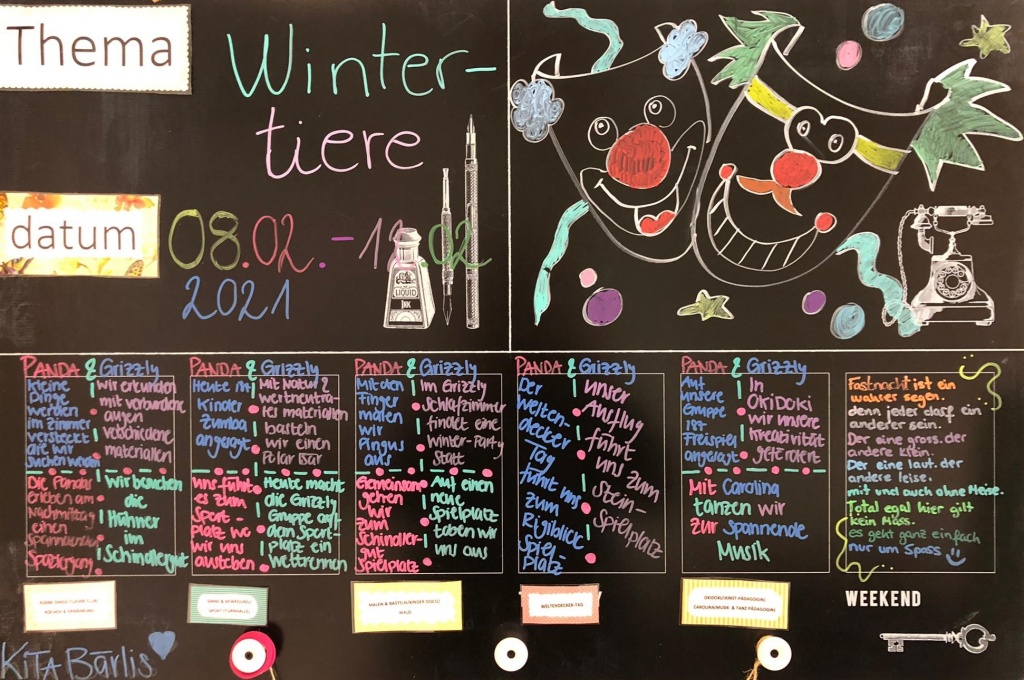 Thema
Winter-
tiere
datum
08.02. - 1 .02
2021
LIQUID
INK
PANDA & Grizzly
Kleine
Dinge
werden
im Zimmer
versteckt
die wir
suchen werden
wir erkunden
mit verbundene
augen
verschiedene
materialien
Die Pandas
erleben am
Nachmittag
einen
Spannenden
Spaziergang
wir besuchen
die
Hühner
im
Schindlergut
PANDA & Grizzly
Heute ist
Kinder
Zumba
angesagt
Mit Natur &
wertneutra-
les materialien
basteln
wir einen
Polar Bär
uns führt
es zum
Sport-
platz wo
wir uns
austoben
Heute macht
die Grizzly
Gruppe auf
dem Sport-
platz ein
wettrennen
PANDA & Grizzly
Mit den
Finger
malen
wir
Pingus
aus
Im Grizzly
Schlafzimmer
findet eine
Winter-Party
statt
Gemeinsam
gehen
wir
zum
Schindler-
gut
Spielplatz
Auf einen
neue
spielplatz
toben wir
uns aus
PANDA & Grizzly
Der
Welten-
decker
Tag
führt uns
zum
Rigiblick
Spiel-
platz
unser
Ausflug
führt
uns zum
Stein-
Spielplatz
PANDA & Grizzly
Auf
unsere
Gruppe
ist
Freispiel
angesagt
In
OKiDOKi
wir unsere
Kreativität
gefordert
Mit Carolina
tanzen wir
zur Spannende
Musik
Fastnacht ist ein
wahrer segen.
denn jeder darf ein
anderer sein.
Der eine gross. der
andere klein.
Der eine laut. der
andere leise.
mit und auch ohne Meise.
Total egal hier gilt
kein Mass.
es geht ganz einfach
nur um Spass
MALEN & BASTELN/KINDER DISCO/
WALD
WELTENDECKER-TAG
OKIDOKI(KUNST PÄDAGOGIN)
CAROLINA(MUSIK & TANZ PÄDAGOGIN)
WEEKEND
KiTA Bärlis